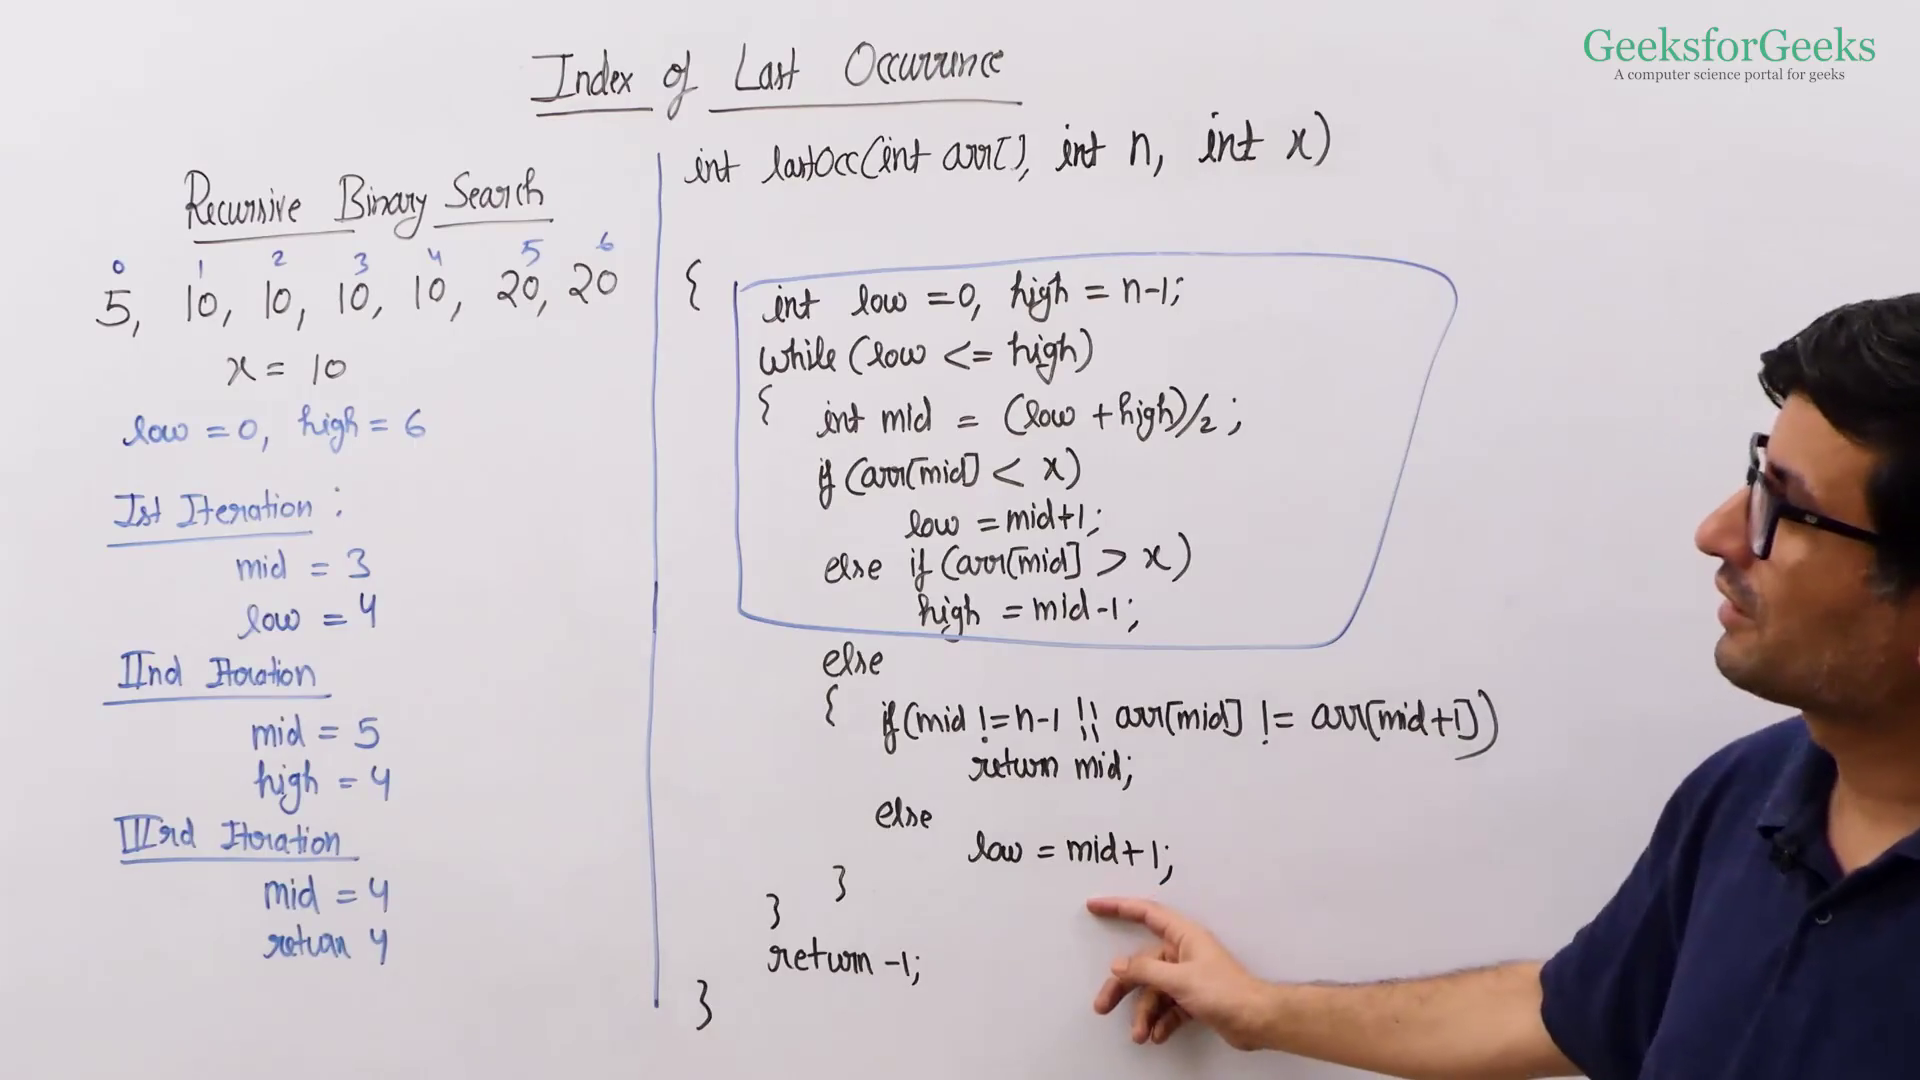 GeeksforGeeks
A computer science portal for geeks
Index of Last Occurrence
Recursive Binary Search
0 1 2 3 4 5 6
5, 10, 10, 10, 10, 20, 20
x = 10
low = 0, high = 6
Ist Iteration :
mid = 3
low = 4
IInd Iteration
mid = 5
high = 4
IIIrd Iteration
mid = 4
return 4
int lastOcc(int arr[], int n, int x)
{
int low = 0, high = n-1;
while (low <= high)
{ int mid = (low + high)/2 ;
if (arr[mid] < x)
low = mid+1;
else if (arr[mid] > x)
high = mid-1;
else
{ if(mid != n-1 || arr[mid] != arr[mid+1])
return mid;
else
low = mid+1;
}
}
return -1;
}